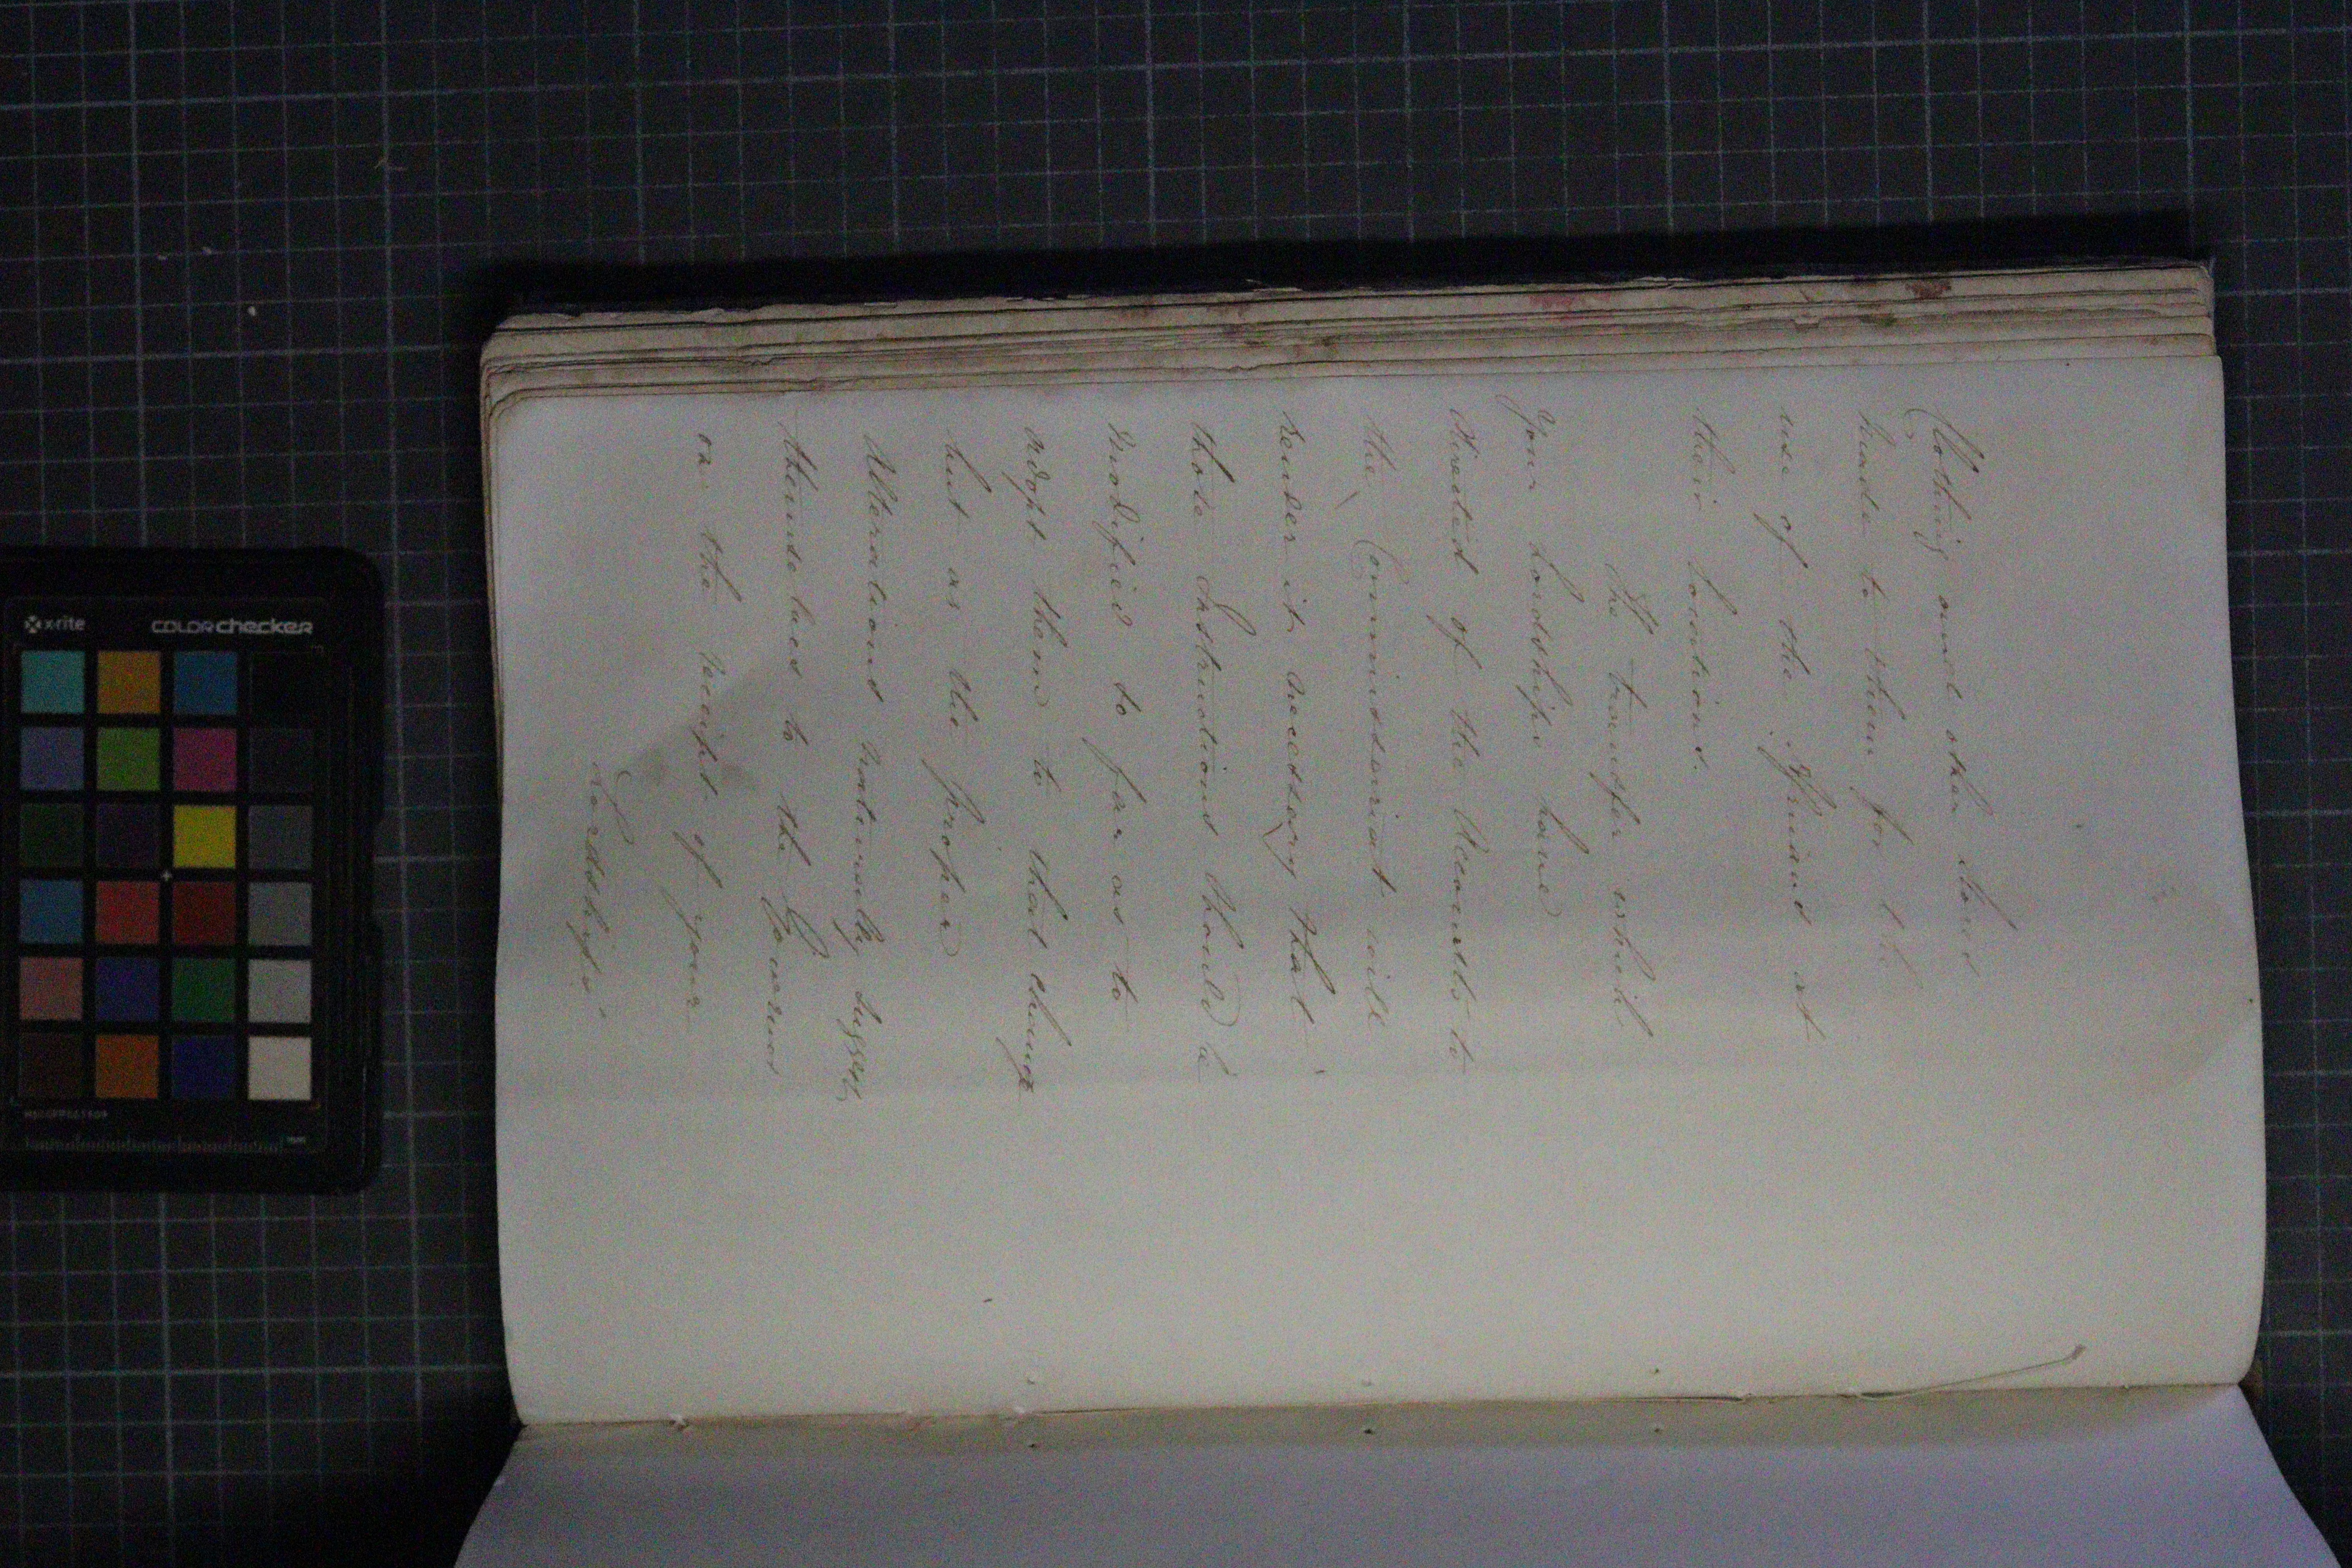 Clothing and other Stores
made to them for the
use of the Officers at
their Stations.
The transfer which
Your Lordships have
directed of the Accounts to
the Commissariat will
render it necessary that
those Instructions should be
modified so far as to
adapt them to that change
but as the proper
Alterations naturally suggest
themselves to the Governor
on the receipt of your
Lordships'
x-rite
COLORchecker
mm